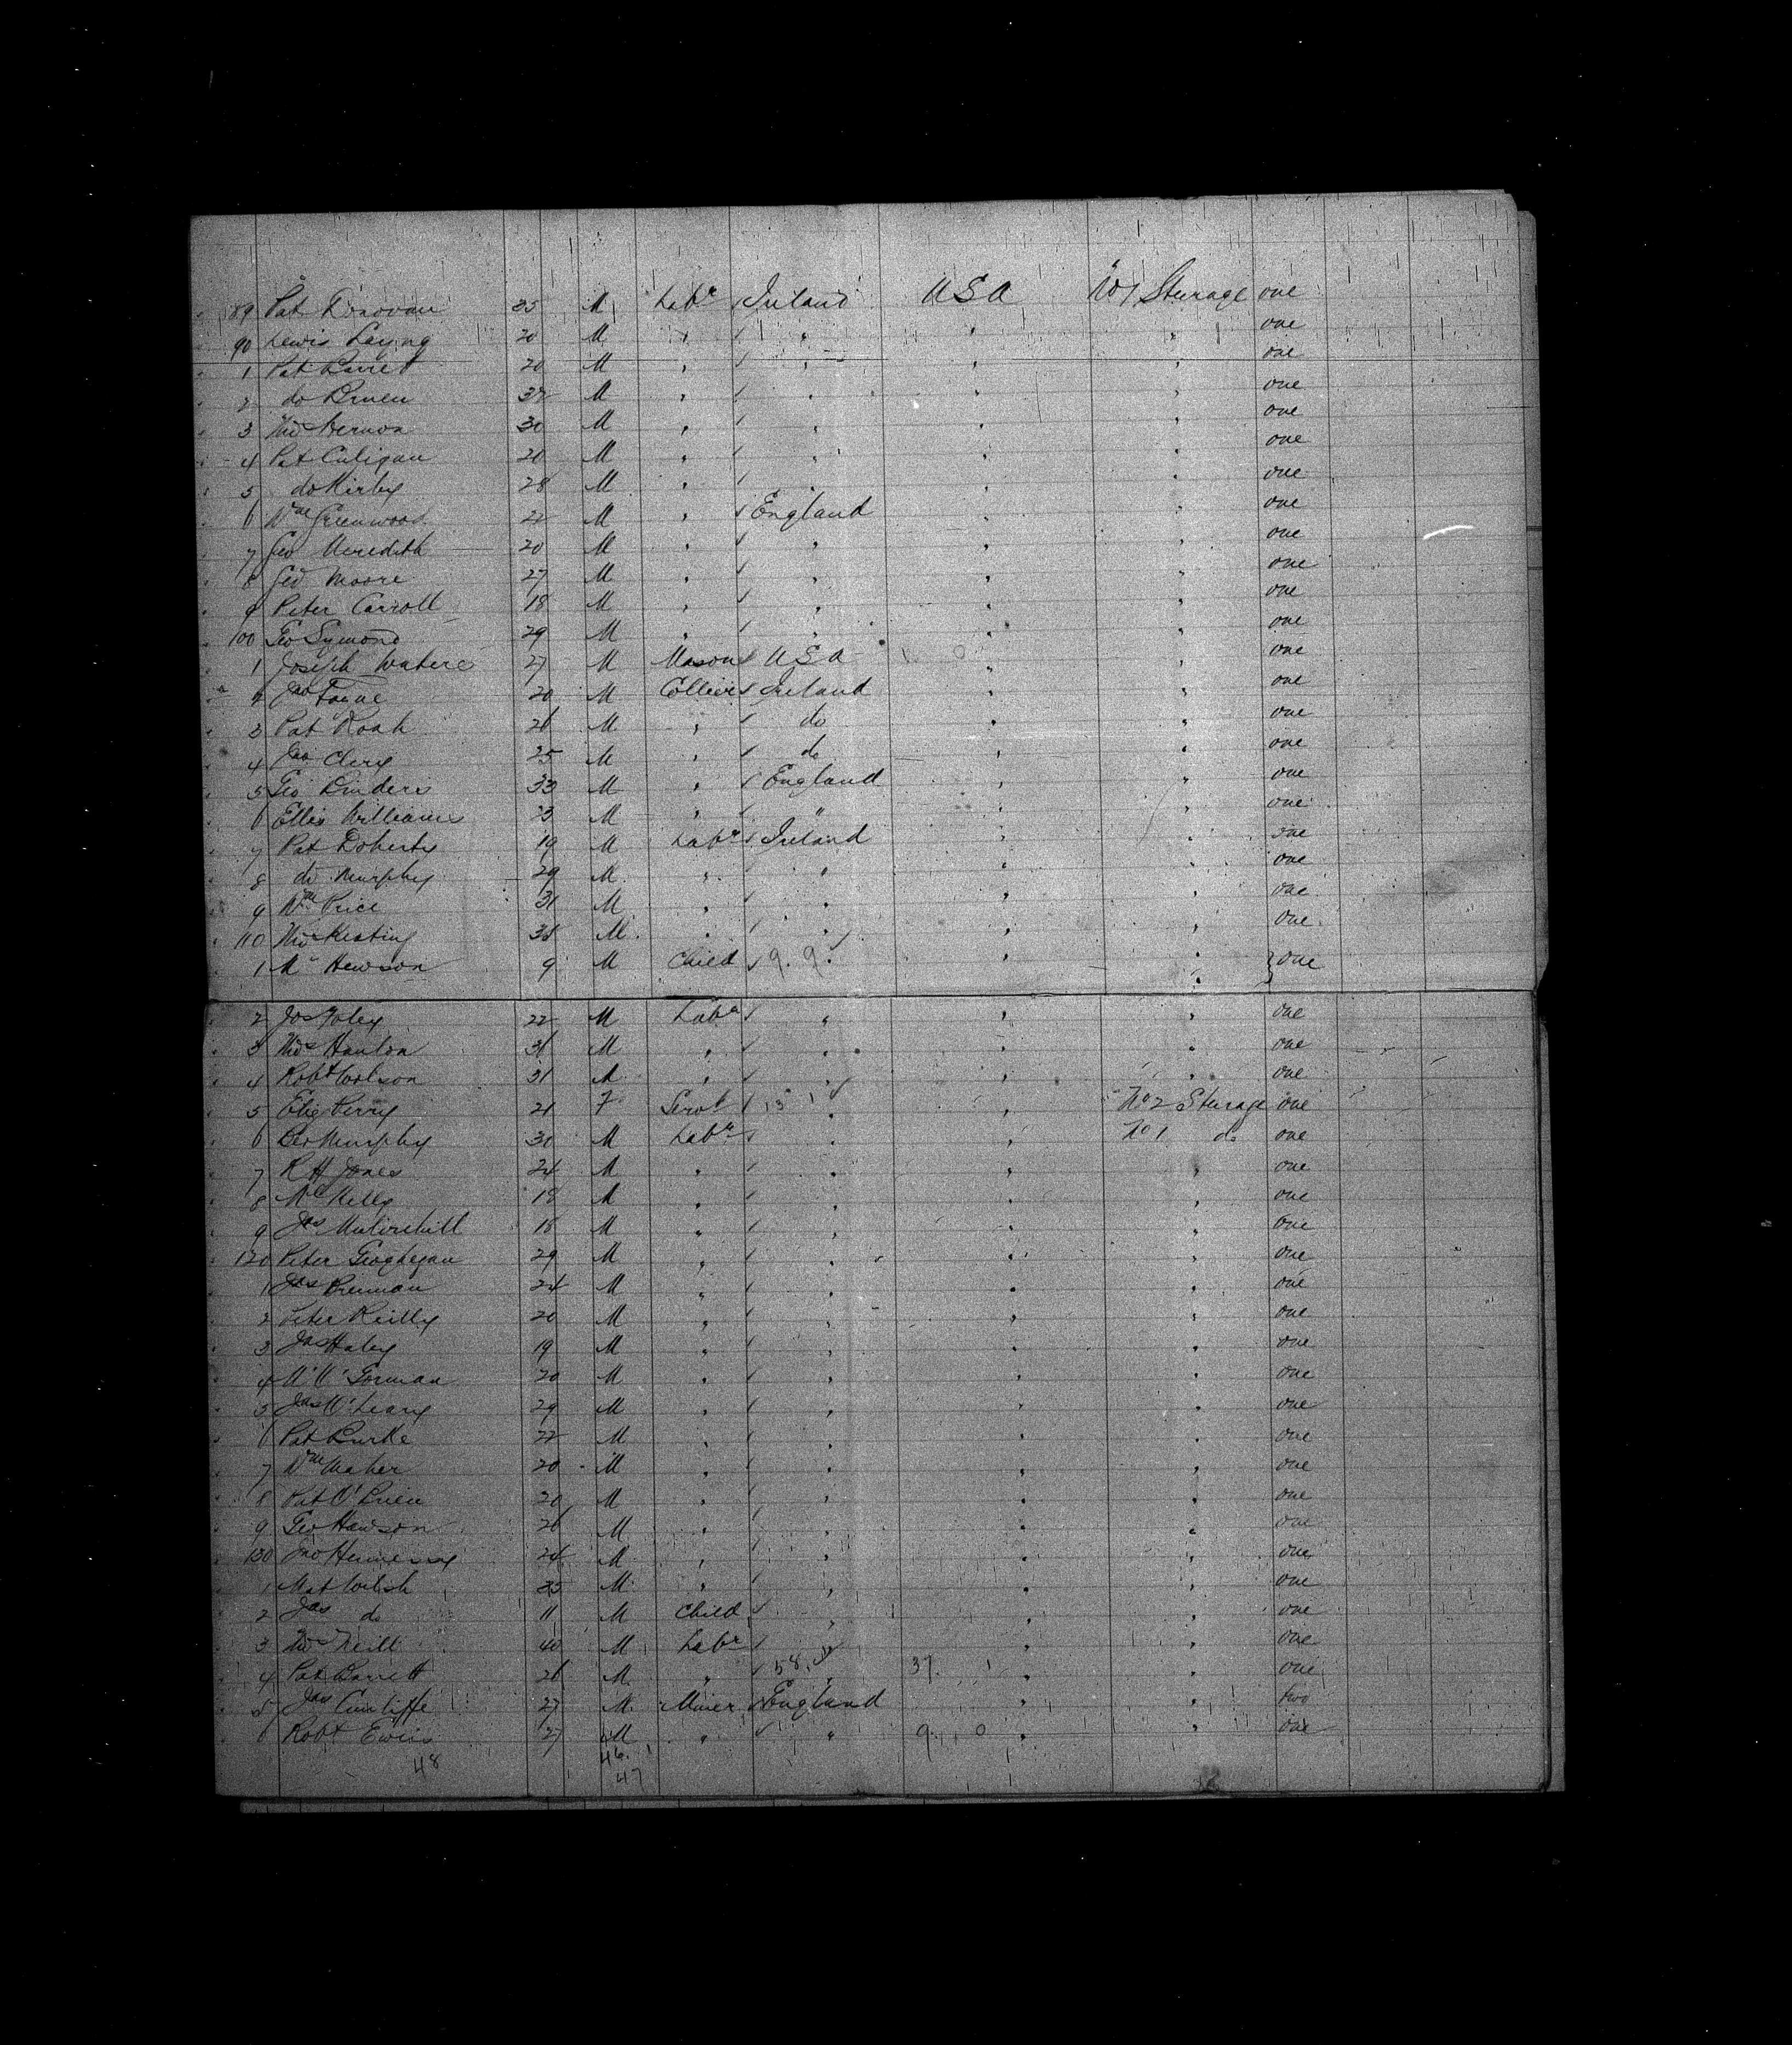 89 Pat Donovan 35 M Labr Ireland USA No 1 Sturage one
90 Lewis Layng 20 M " " " " one
1 Pat Barret 20 M " " " " one
2 do Bruen 32 M " " " " one
3 Thos Hernon 30 M " " " " one
4 Pat Culigan 20 M " " " " one
5 do Kirby 28 M " " " " one
6 Wm Greenwood 22 M " England " " one
7 Geo Meredith 20 M " " " " one
8 Geo Moore 27 M " " " " one
9 Peter Carroll 18 M " " " " one
100 Geo Symond 29 M " " " " one
1 Joseph Waters 27 M Mason USA " " one
2 Jno 20 M Collier Ireland " " one
3 Pat Roah 26 M " do " " one
4 Jas Clery 25 M " do " " one
5 Geo Binders 33 M " England " " one
6 Ellis Williams 23 M " " " " one
7 Pat Doherty 19 M Labr Ireland " " one
8 do Murphy 29 M " " " " one
9 Wm Price 31 M " " " " one
110 Thos Keating 38 M " " " " one
1 Mc Hewson 9 M Child 9. 9. " " one
2 Jas Foley 22 M Labr " " " one
3 Thos Hanlon 36 M " " " " one
4 Robt Wolson 31 M " " " " one
5 Eliz Perry 21 F Servt 13 1 " " No 2 Sturage one
6 Murphy 30 M Labr " " No 1 do one
7 R H Jones 24 M " " " " one
8 Ml Kelly 18 M " " " " one
9 Jas 18 M " " " " one
120 Peter Geoghegan 29 M " " " " one
1 Jas Brennan 24 M " " " " one
2 Peter Reilly 20 M " " " " one
3 Jas Haley 19 M " " " " one
4 M O'Gorman 20 M " " " " one
5 Jas O'Leary 29 M " " " " one
6 Pat Burke 22 M " " " " one
7 Wm Maher 20 M " " " " one
8 Pat O'Brien 20 M " " " " one
9 Geo Hawson 26 M " " " " one
130 Jno Hennessy 24 M " " " " one
1 Mat Welsh 35 M " " " " one
2 Jas do 11 M Child " " " one
3 Thos Neill 40 M Labr " " " one
4 Pat Barrett 26 M " 58. 37. 1 " " one
5 Jas Cunliffe 27 M Miner England " " two
6 Robt Ewins 27 M " " 9. 0 " " one
48 46. 1
47